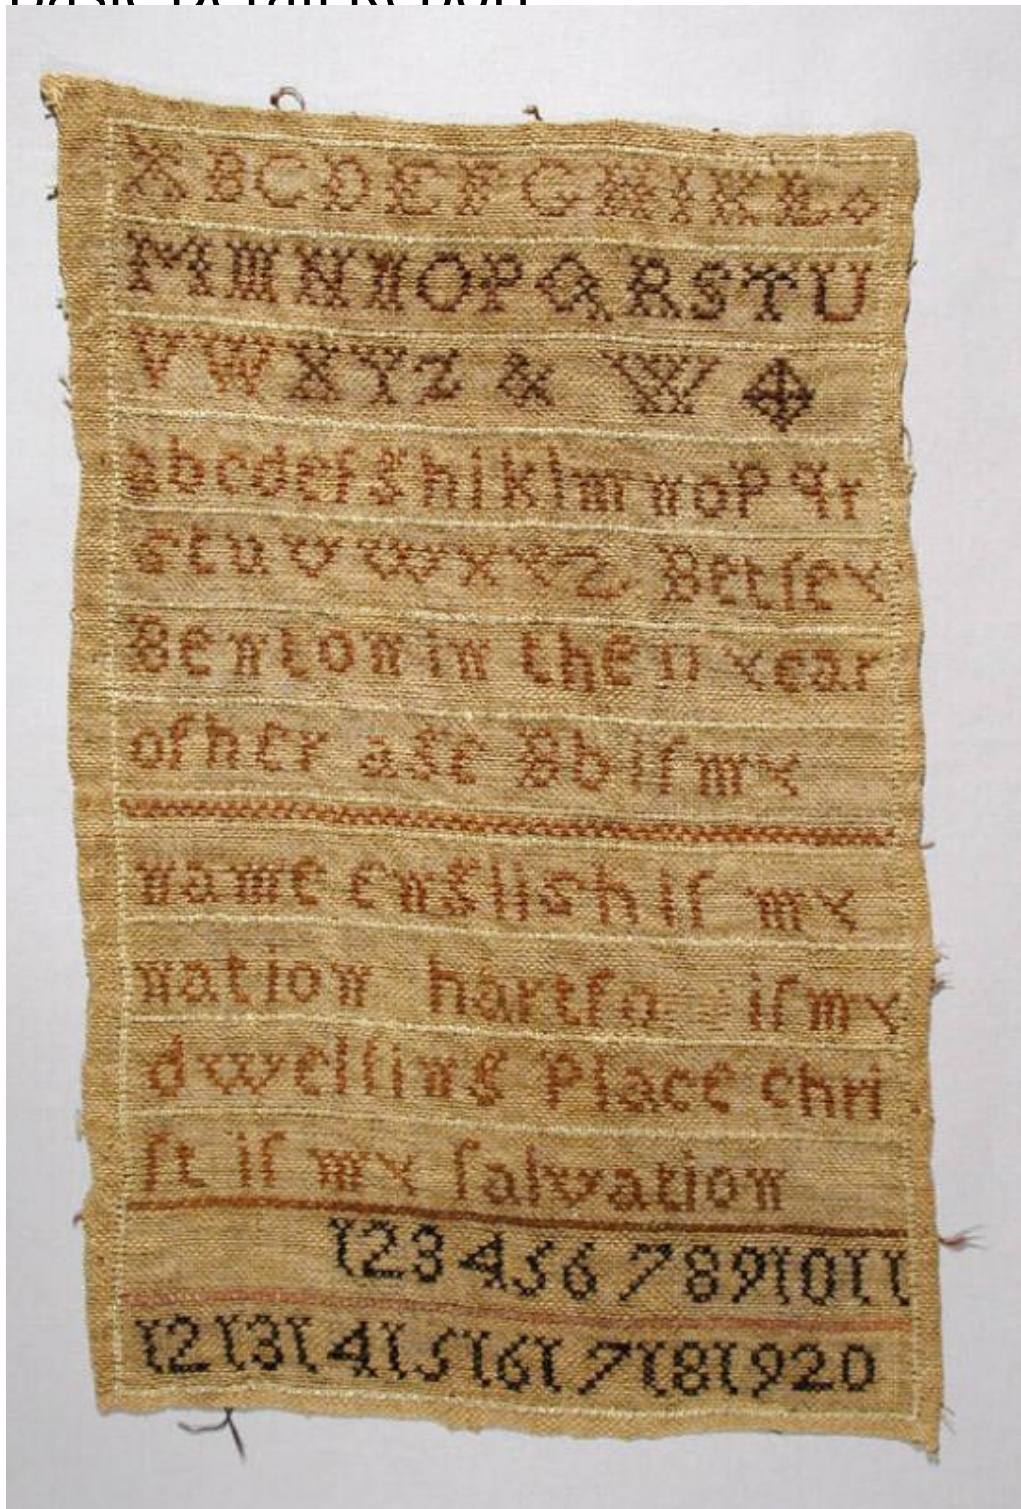 Basic Detail Report
A B C D E F G H I K L
M M N N O P Q R S T U
V W X Y Z & W
a b c d e f g h i k l m n o p q r
s t u v w x y z Betſey
Benton in the 11 year
of her age Bb iſ my
name english iſ my
nation hartfo iſ my
dwelling Place chri
ſt iſ my ſalvation
1 2 3 4 5 6 7 8 9 10 11
12 13 14 15 16 17 18 19 20